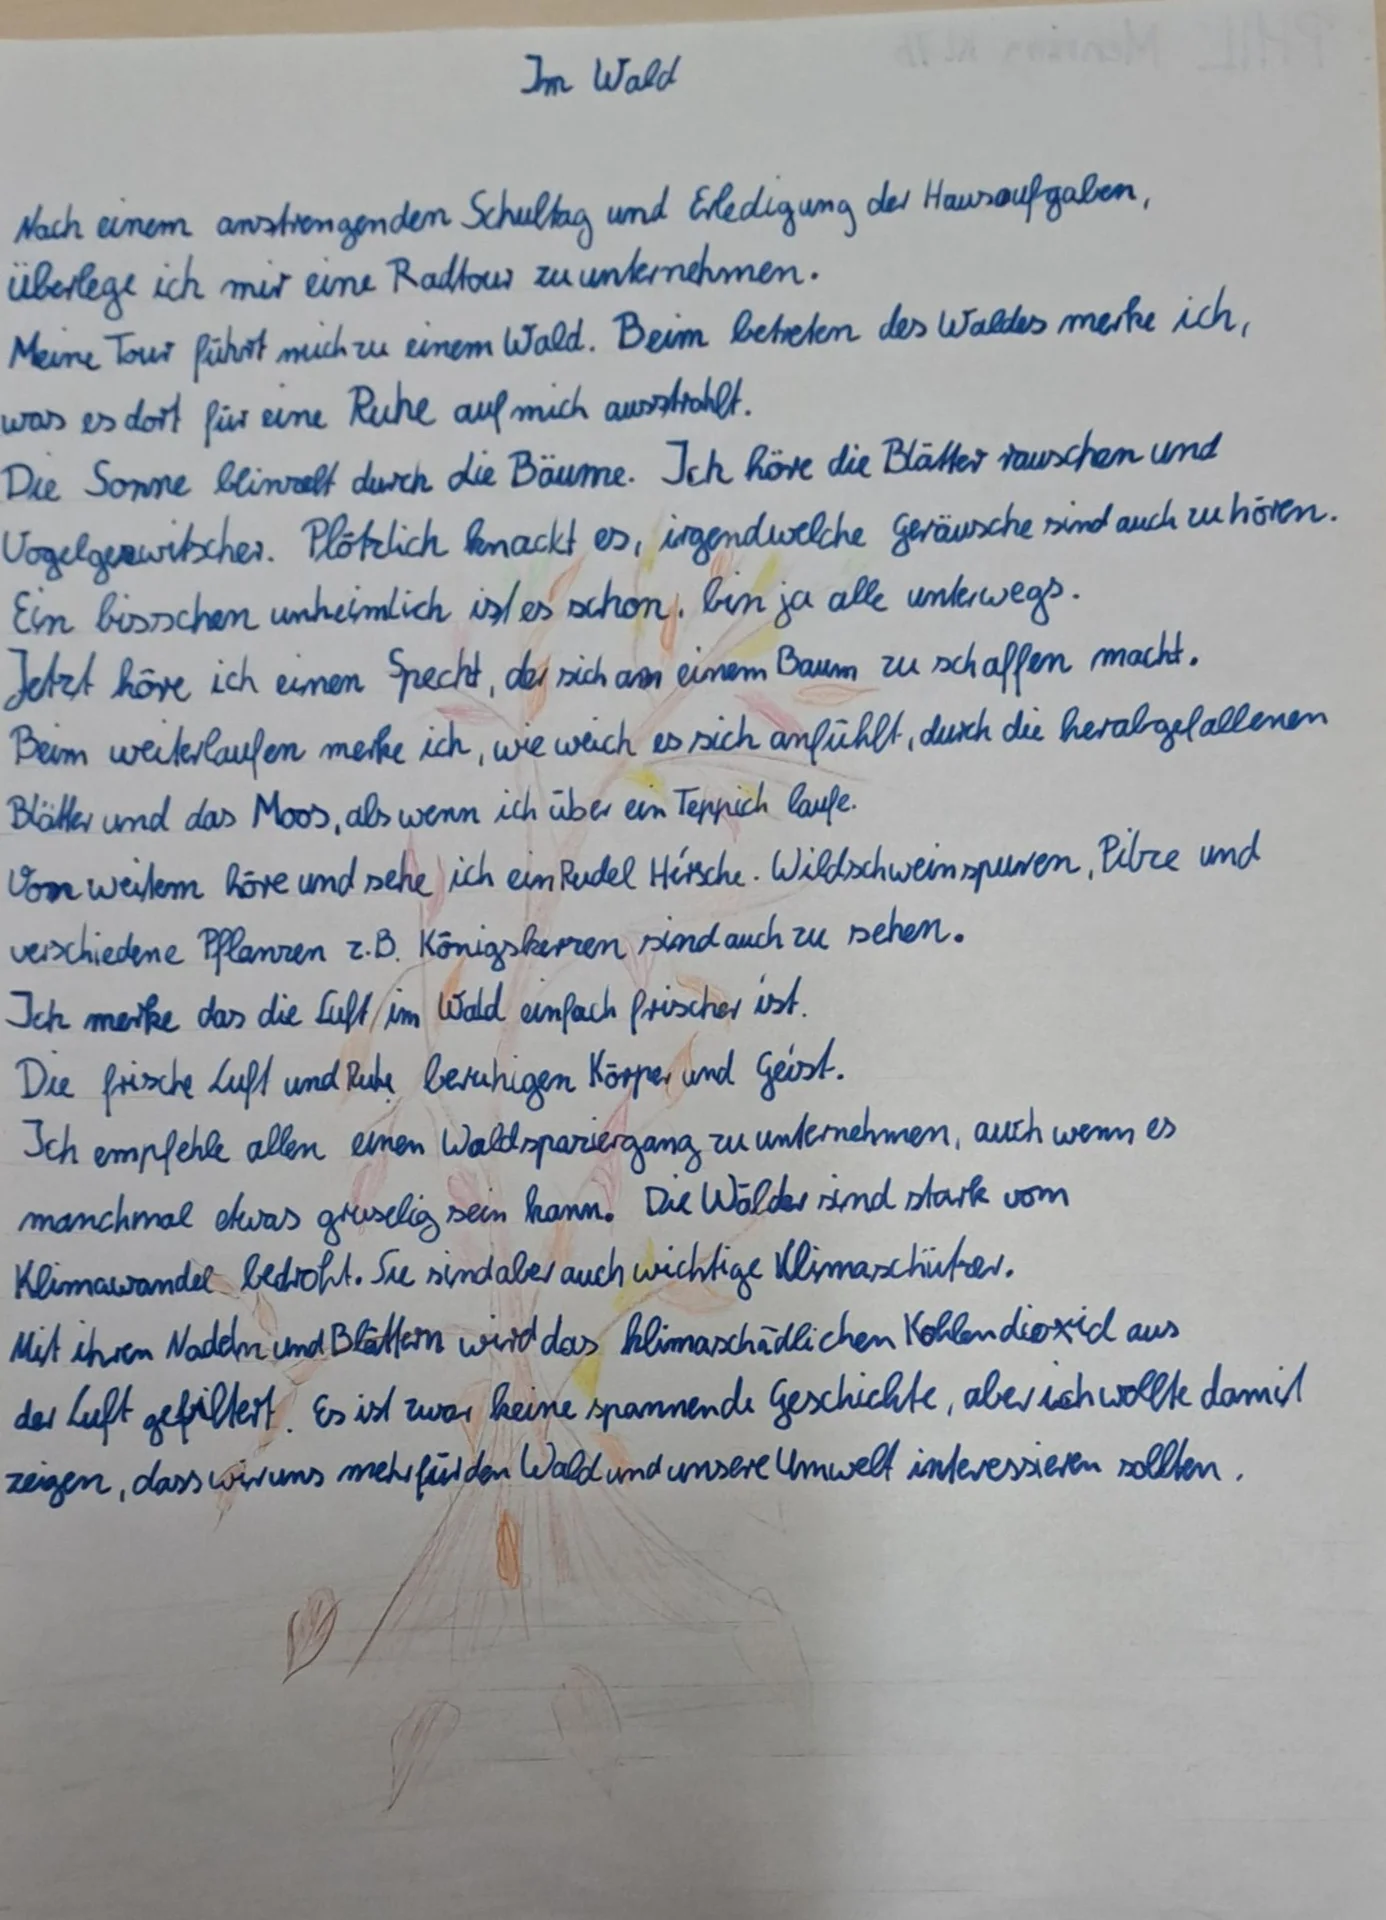 Im Wald
Nach einem anstrengenden Schultag und Erledigung der Hausaufgaben,
überlege ich mir eine Radtour zu unternehmen.
Meine Tour führt mich zu einem Wald. Beim betreten des Waldes merke ich,
was es dort für eine Ruhe auf mich ausstrahlt.
Die Sonne blinzelt durch die Bäume. Ich höre die Blätter rauschen und
Vogelgezwitscher. Plötzlich knackt es, irgendwelche Geräusche sind auch zu hören.
Ein bisschen unheimlich ist es schon, bin ja alle unterwegs.
Jetzt höre ich einen Specht, der sich an einem Baum zu schaffen macht.
Beim weiterlaufen merke ich, wie weich es sich anfühlt, durch die herabgefallenen
Blätter und das Moos, als wenn ich über ein Teppich laufe.
Von weitem höre und sehe ich ein Rudel Hirsche. Wildschweinspuren, Pilze und
verschiedene Pflanzen z.B. Königskerzen sind auch zu sehen.
Ich merke das die Luft im Wald einfach frischer ist.
Die frische Luft und Ruhe beruhigen Körper und Geist.
Ich empfehle allen einen Waldspaziergang zu unternehmen, auch wenn es
manchmal etwas gruselig sein kann. Die Wälder sind stark vom
Klimawandel bedroht. Sie sind aber auch wichtige Klimaschützer.
Mit ihren Nadeln und Blättern wird das klimaschädlichen Kohlendioxid aus
der Luft gefiltert. Es ist zwar keine spannende Geschichte, aber ich wollte damit
zeigen, dass wir uns mehr für den Wald und unsere Umwelt interessieren sollten.